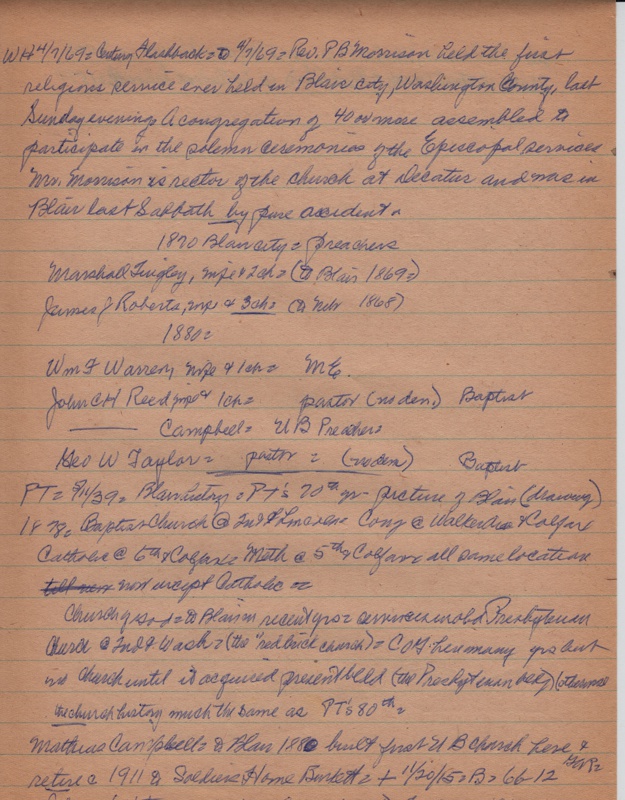 WH 4/7/69 = Century Flashback = 4/7/69 = Rev. P B Morrison held the first
religious service ever held in Blair city, Washington County, last
Sunday evening. A congregation of 40 or more assembled to
participate in the solemn ceremonies of the Episcopal services
Mr. Morrison is rector of the church at Decatur and was in
Blair last Sabbath by pure accident.
1870 Blair city = preachers
Marshall Tingley, wife & 2 ch = (to Blair 1869 =)
James J Roberts, wife & 3 ch = (to Nebr 1868)
1880 =
Wm F Warren, wife & 1 ch = M E.
John C H Reed wife & 1 ch = pastor (no den.) Baptist
Campbell = U B Preacher =
Geo W Taylor = pastor = (no den) Baptist
PT = /39 = Blair history = PT's 70th yr - picture of Blair (drawing)
18 Baptist Church @ 2nd & Cong @ Walker & Colfax
Catholic @ 6th & Colfax = Meth @ 5th & Colfax all same location
till now now except Catholic =
Church of God = to Blair in recent yrs = services in old Presbyterian
Church @ 2nd & Wash = (the "red brick church) = COG here many yrs but
no church until it acquired present bldd (the Presbyterian
the church history much the same as PT's 80th =
Mathias Campbell = to Blair 1880 built first U B church here &
retire c 1911 to Soldiers Home Burkett = + 11/20/15 = B = 66-12